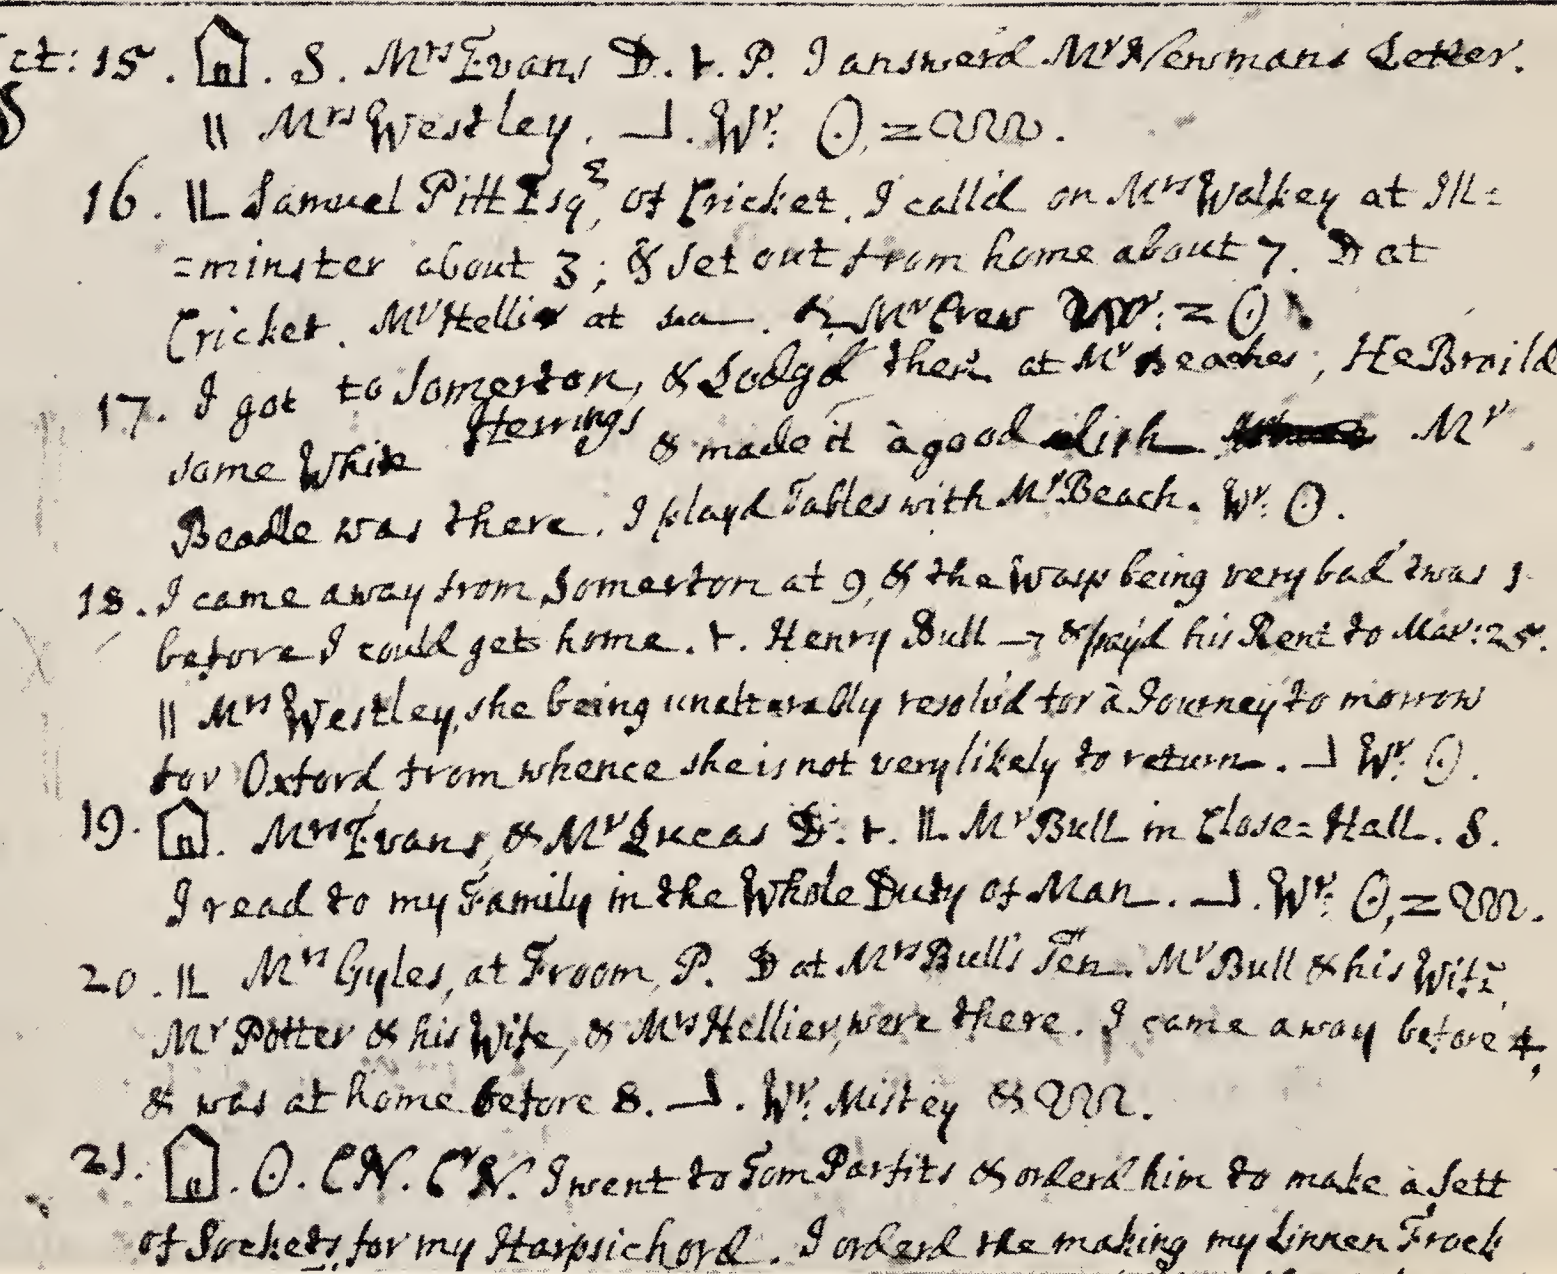 ct: 15. S. Mrs Evans D. t. P. I answerd Mr Newmans Letter.
|| Mrs Westley. ⅃. Wr: ʘ, =
16. Samuel Pitt Esqr, of Cricket. I calld on Mrs Walkey at Ill=
=minster about 3; & set out from home about 7. D at
Cricket. Mr Hellier at sea. & Mr Crew Wr: = ʘ
17. I got to Somerton, & Lodg'd there at Mr Beaches; He Broild
some White Herrings & made it à good dish Mr
Beadle was there. I playd Tables with Mr Beach. Wr: ʘ.
18. I came away from Somerton at 9, & the Ways being very bad 'twas 1
before I could get home. t. Henry Bull & pay'd his Rent to Mar: 25.
|| Mrs Westley, she being unalterably resolv'd for à Journey to morrow
for Oxford from whence she is not very likely to return. ⅃ Wr: ʘ.
19. Mrs Evans, & Mr Lucas D. t. Mr Bull in Close=Hall. S.
I read to my Family in the Whole Duty of Man. ⅃. Wr: ʘ, =
20. Mrs Gyles, at Froom, P. D at Mrs Bull's Ten. Mr Bull & his Wife,
Mr Potter & his Wife, & Mrs Hellier, were there. I came away before 4,
& was at home before 8. ⅃. Wr: Mistey &
21. ʘ. CN. CrN. I went to Tom Parfits & orderd him to make à sett
of Sockets, for my Harpsichord. I orderd the making my Linnen Frock